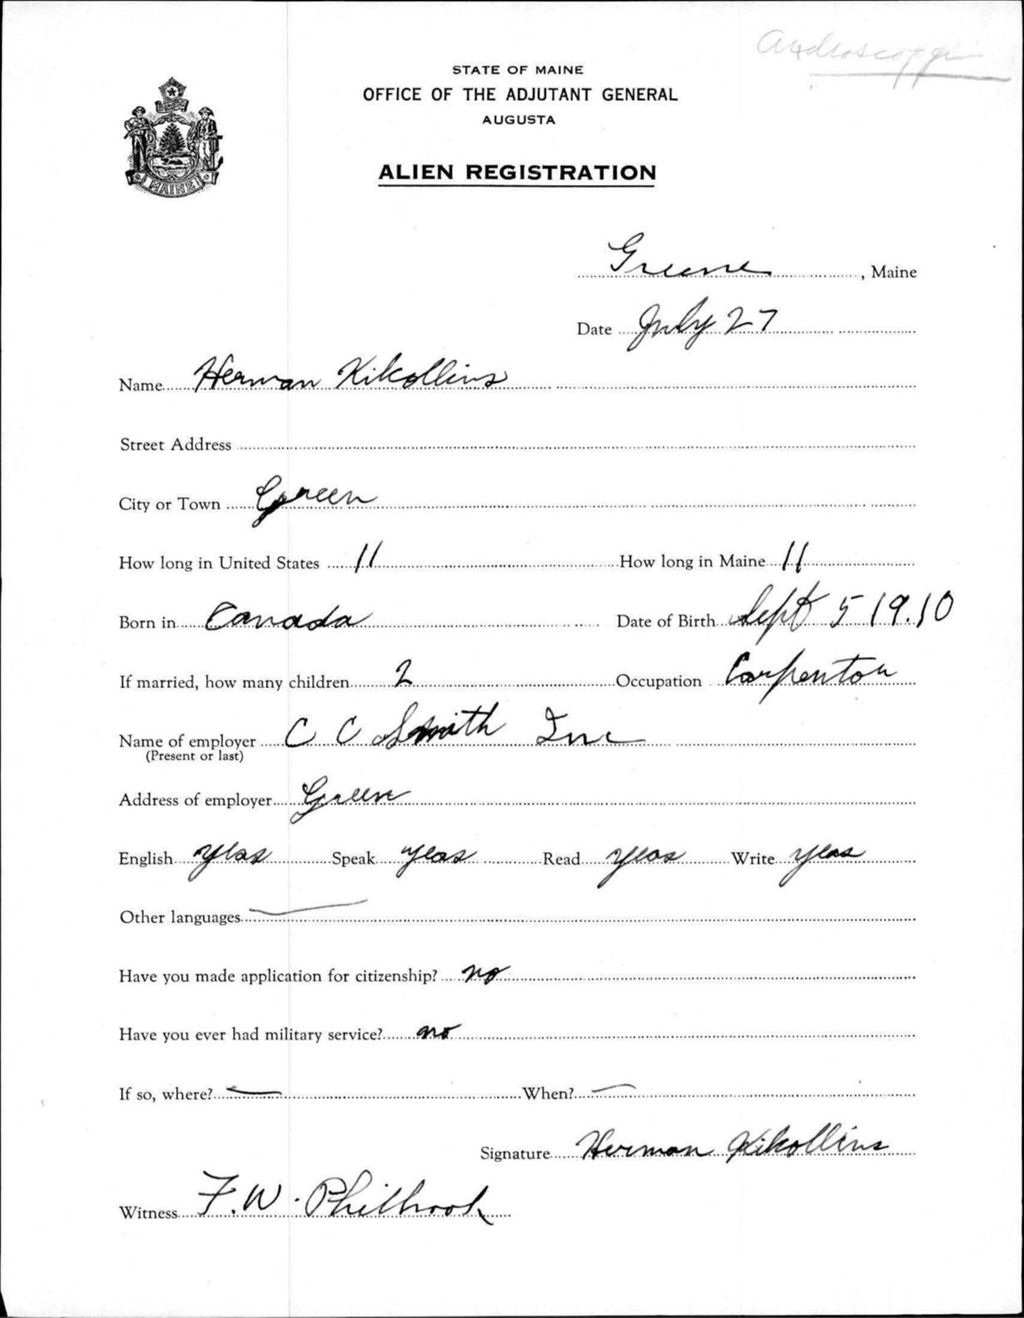 Androscoggin
STATE OF MAINE
OFFICE OF THE ADJUTANT GENERAL
AUGUSTA
ALIEN REGISTRATION
MAINE
Greene, Maine
Date July 27
Name Herman Kikollins
Street Address
City or Town Green
How long in United States 11 How long in Maine 11
Born in Canada Date of Birth Sept 5 1910
If married, how many children 2 Occupation Carpentor
Name of employer C C Smith Inc
(Present or last)
Address of employer Green
English yeas Speak yeas Read yeas Write yeas
Other languages —
Have you made application for citizenship? no
Have you ever had military service? no
If so, where? — When? —
Signature Herman Kikollins
Witness F. W. Philbrook